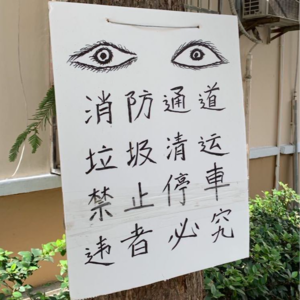 消防通道
垃圾清运
禁止停車
违者必究